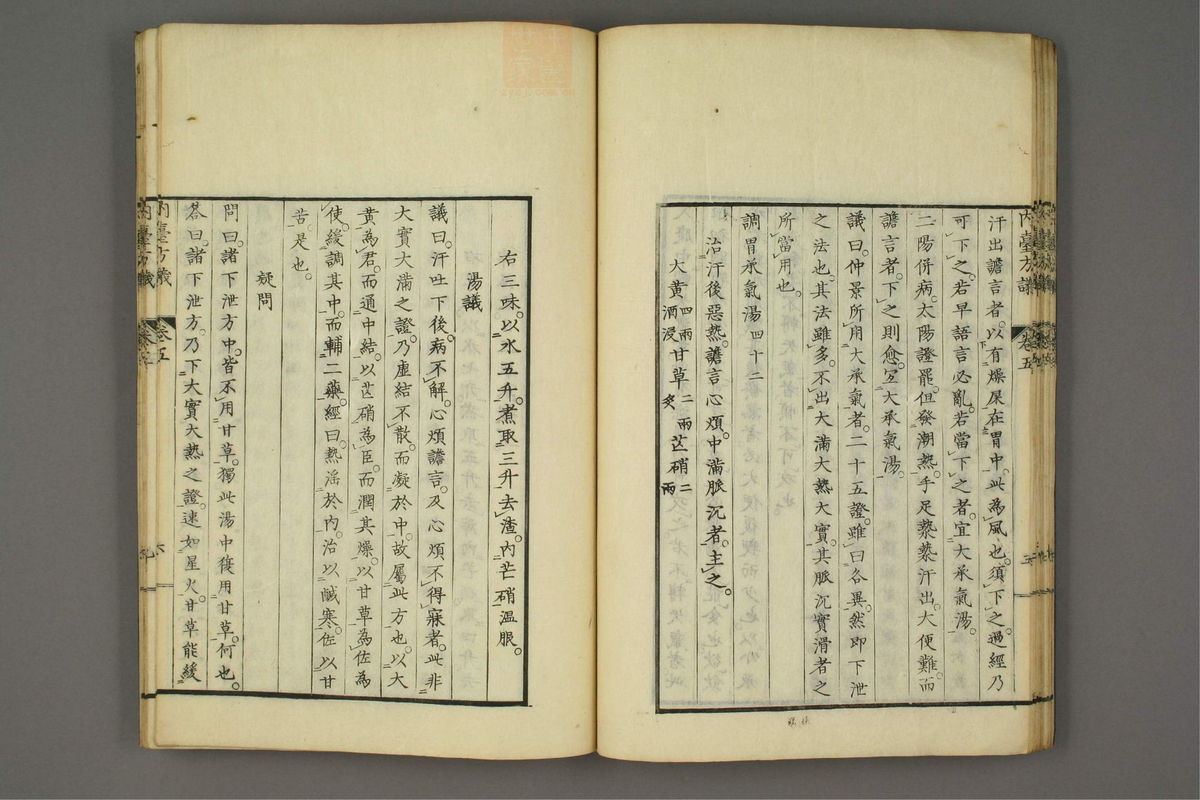 汗出譫言者。以有燥屎在胃中。此為風也。須下之過經乃
可下之。若早語言必亂。若當下之者。宜大承氣湯。
二陽併病。太陽證罷。但發潮熱。手足漐漐汗出。大便難而
譫言者。下之則愈。宜大承氣湯。
議曰。仲景所用大承氣者。二十五證。雖曰各異。然即下泄
之法也。其法雖多。不出大滿大熱大實。其脈沉實滑者之
所當用也。
調胃承氣湯四十二
治汗後惡熱。譫言心煩。中滿脈沉者。主之。
大黃四兩酒浸 甘草二兩炙 芒硝二兩
右三味。以水五升。煮取三升去渣。內芒硝溫服。
湯議
議曰。汗吐下後。病不解。心煩譫言。及心煩不得寐者。此非
大實大滿之證。乃虛結不散。而凝於中。故屬此方也。以大
黃為君。而通中結。以芒硝為臣。而潤其燥。以甘草為佐為
使。緩調其中。而輔二藥。經曰。熱淫於內。治以鹹寒。佐以甘
苦。是也。
疑問
問曰。諸下泄方中。皆不用甘草。獨此湯中復用甘草。何也。
答曰。諸下泄方。乃下大實大熱之證。速如星火。甘草能緩
內臺方議
卷五
內臺方議
卷五
六